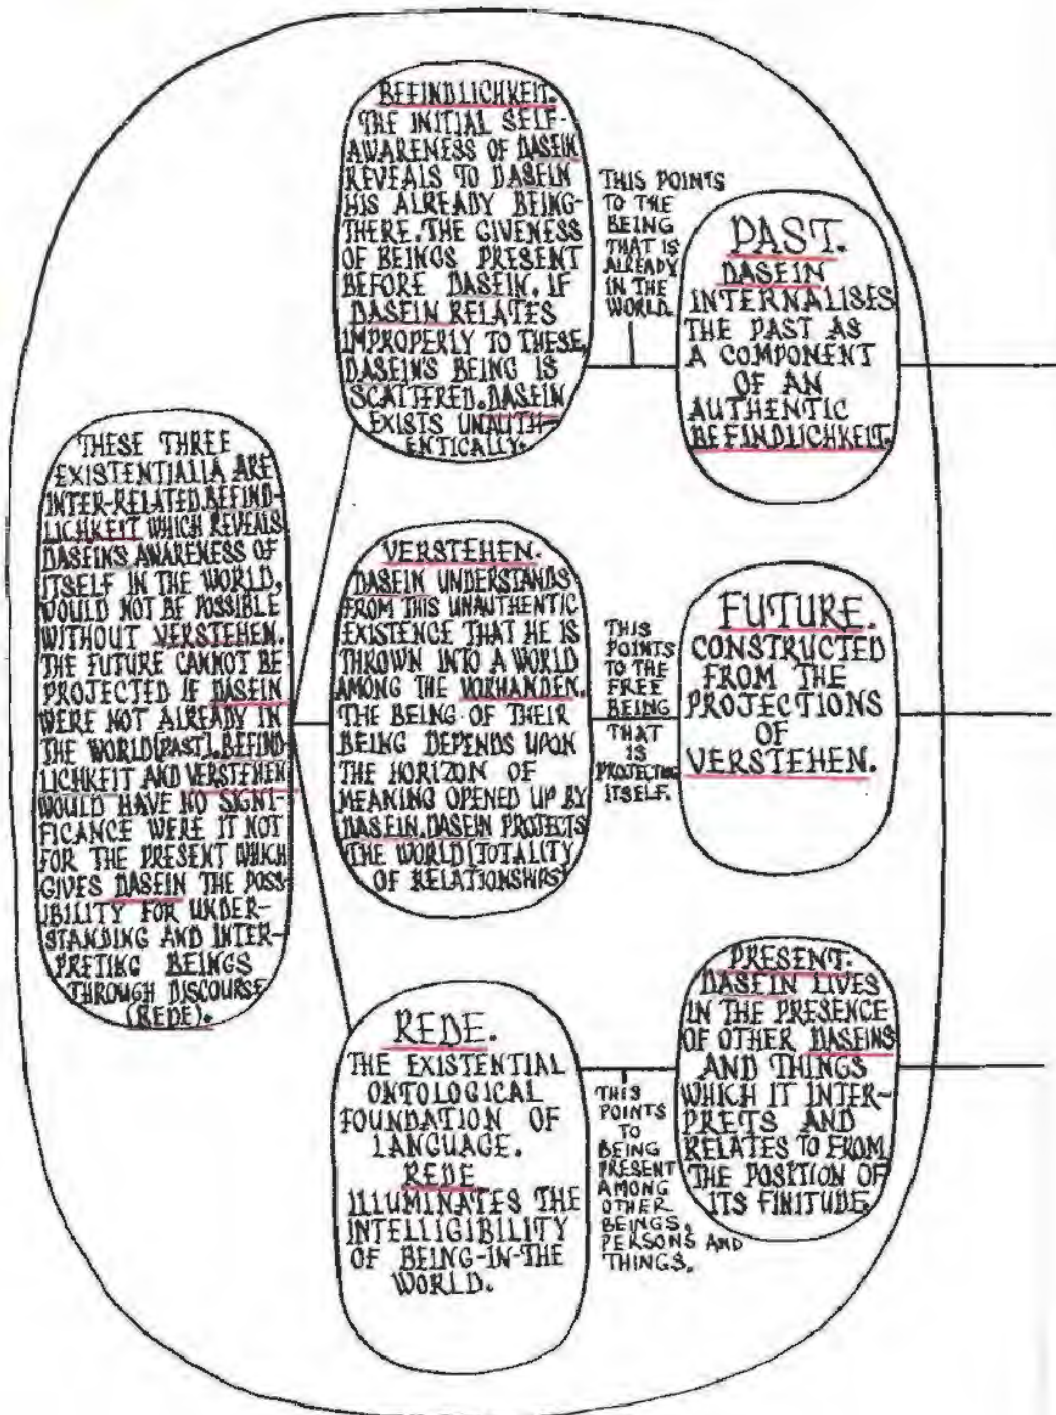 THESE THREE
EXISTENTIALIA ARE
INTER-RELATED. BEFIND-
LICHKEIT WHICH REVEALS
DASEINS AWARENESS OF
ITSELF IN THE WORLD,
WOULD NOT BE POSSIBLE
WITHOUT VERSTEHEN.
THE FUTURE CANNOT BE
PROJECTED IF DASEIN
WERE NOT ALREADY IN
THE WORLD (PAST). BEFIND-
LICHKEIT AND VERSTEHEN
WOULD HAVE NO SIGNI-
FICANCE WERE IT NOT
FOR THE PRESENT WHICH
GIVES DASEIN THE POSS-
IBILITY FOR UNDER-
STANDING AND INTER-
PRETING BEINGS
THROUGH DISCOURSE
(REDE).
BEFINDLICHKEIT.
THE INITIAL SELF-
AWARENESS OF DASEIN
REVEALS TO DASEIN
HIS ALREADY BEING-
THERE. THE GIVENESS
OF BEINGS PRESENT
BEFORE DASEIN. IF
DASEIN RELATES
IMPROPERLY TO THESE,
DASEIN'S BEING IS
SCATTERED. DASEIN
EXISTS UNAUTH-
ENTICALLY.
THIS POINTS
TO THE
BEING
THAT IS
ALREADY
IN THE
WORLD.
PAST.
DASEIN
INTERNALISES
THE PAST AS
A COMPONENT
OF AN
AUTHENTIC
BEFINDLICHKEIT.
VERSTEHEN.
DASEIN UNDERSTANDS
FROM THIS UNAUTHENTIC
EXISTENCE THAT HE IS
THROWN INTO A WORLD
AMONG THE VORHANDEN.
THE BEING OF THEIR
BEING DEPENDS UPON
THE HORIZON OF
MEANING OPENED UP BY
DASEIN. DASEIN PROJECTS
THE WORLD (TOTALITY
OF RELATIONSHIPS)
THIS
POINTS
TO THE
FREE
BEING
THAT
IS
PROJECTING
ITSELF.
FUTURE.
CONSTRUCTED
FROM THE
PROJECTIONS
OF
VERSTEHEN.
REDE.
THE EXISTENTIAL
ONTOLOGICAL
FOUNDATION OF
LANGUAGE.
REDE
ILLUMINATES THE
INTELLIGIBILITY
OF BEING-IN-THE
WORLD.
THIS
POINTS
TO
BEING
PRESENT
AMONG
OTHER
BEINGS,
PERSONS AND
THINGS.
PRESENT.
DASEIN LIVES
IN THE PRESENCE
OF OTHER DASEINS
AND THINGS
WHICH IT INTER-
PRETS AND
RELATES TO FROM
THE POSITION OF
ITS FINITUDE.